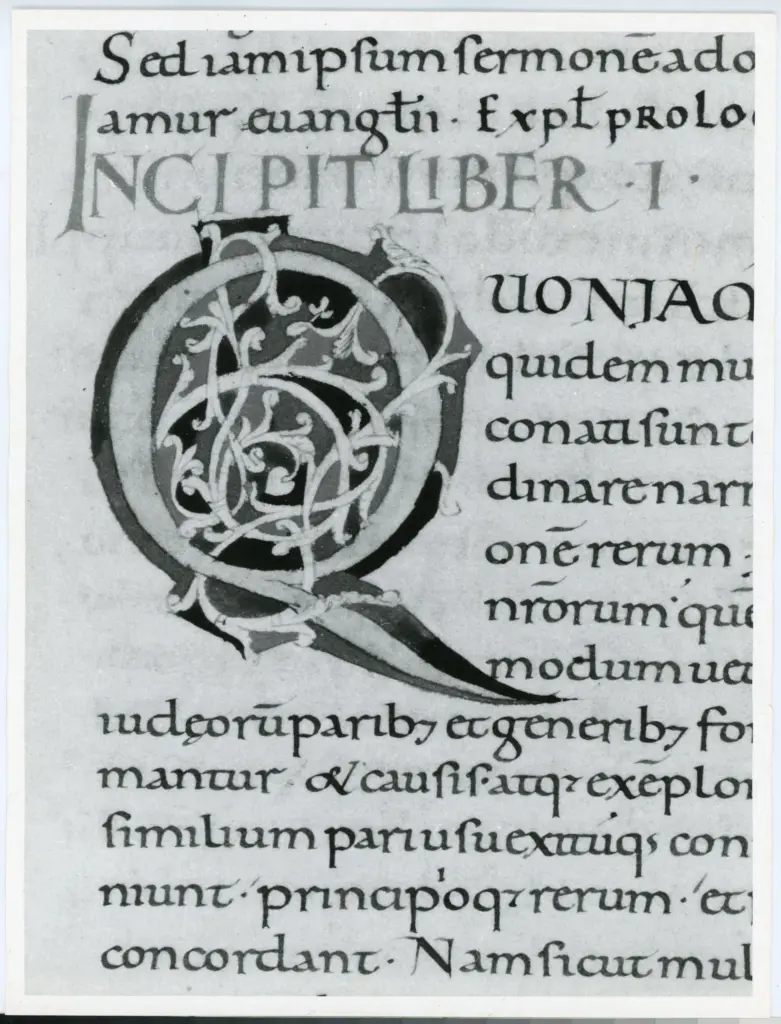 Sed iam ipsum sermonē ado
amur euangłii · Expł prolo
INCIPIT LIBER · I ·
QUONIAM
quidem mu
conati sunt
dinare narr
onē rerum ·
nrōrum · quē
modum uer
iudęorū parib; et generib; for
mantur · & causis · atq; exēplor
similium pari usu exituiq; con
niunt · principioq; rerum · et
concordant · Nam sicut mul